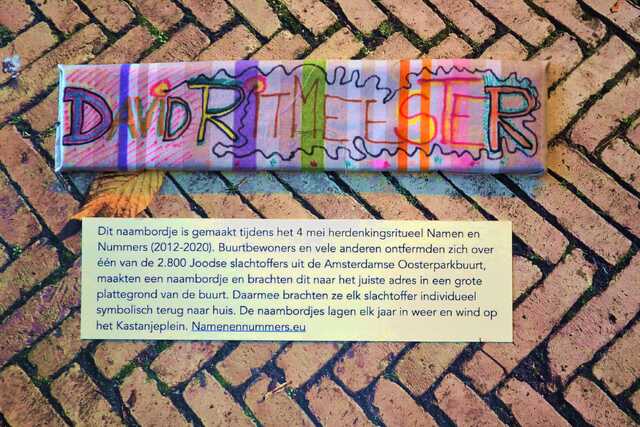 DAViD RITMEESTER
Dit naambordje is gemaakt tijdens het 4 mei herdenkingsritueel Namen en
Nummers (2012-2020). Buurtbewoners en vele anderen ontfermden zich over
één van de 2.800 Joodse slachtoffers uit de Amsterdamse Oosterparkbuurt,
maakten een naambordje en brachten dit naar het juiste adres in een grote
plattegrond van de buurt. Daarmee brachten ze elk slachtoffer individueel
symbolisch terug naar huis. De naambordjes lagen elk jaar in weer en wind op
het Kastanjeplein. Namenennummers.eu